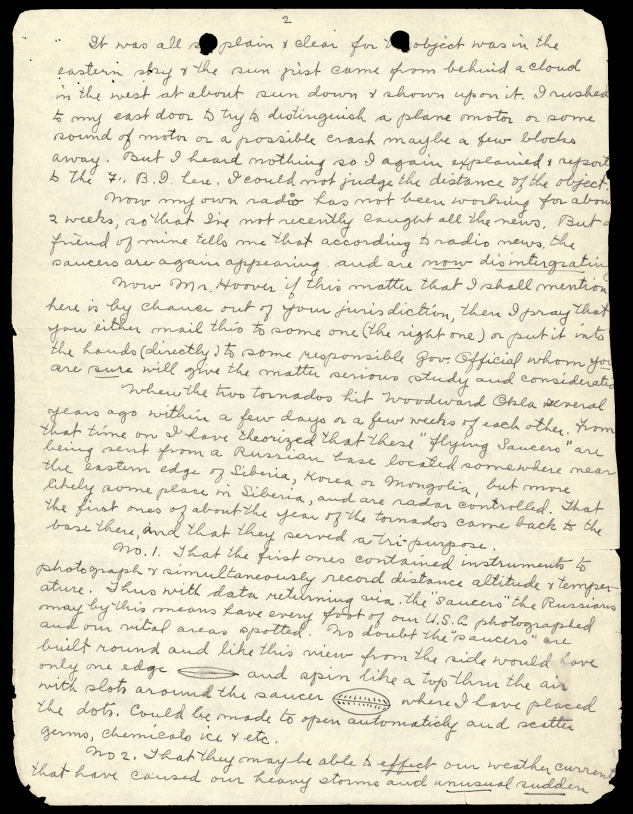 2
It was all so plain & clear for the object was in the
eastern sky & the sun just came from behind a cloud
in the west at about sun down & shown upon it. I rushed
to my east door to try to distinguish a plane motor or some
sound of motor or a possible crash maybe a few blocks
away. But I heard nothing so I again explained & report
to the F. B. I. here. I could not judge the distance of the object.
Now my own radio has not been working for about
2 weeks, so that I've not recently caught all the news. But a
friend of mine tells me that according to radio news. the
saucers are again appearing. and are now disintergrating
Now Mr. Hoover if this matter that I shall mention
here is by chance out of your jurisdiction, then I pray that
you either mail this to some one (the right one) or put it into
the hands (directly) to some responsible Gov. Official whom you
are sure will give the matter serious study and considerate
When the two tornados hit Woodward Okla several
years ago within a few days or a few weeks of each other. From
that time on I have theorized that these "flying Saucers" are
being sent from a Russian base located somewhere near
the eastern edge of Siberia, Korea or Mongolia, but more
likely some place in Siberia, and are radar controlled. That
the first ones of about the year of the tornados came back to the
base there, and that they served a tri-purpose.
No. 1. That the first ones contained instruments to
photograph & simultaneously record distance altitude & temper-
ature. Thus with data returning via. the "saucers" the Russians
may by this means have every foot of our U.S.A photographed
and our vital areas spotted. No doubt the "saucers" are
built round and like this view from the side would have
only one edge and spin like a top thru the air
with slots around the saucer where I have placed
the dots. Could be made to open automaticly and scatter
germs, chemicals ice & etc.
No 2. That they may be able to effect our weather current
that have caused our heavy storms and unusual sudden